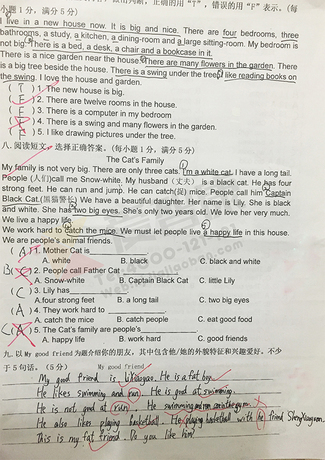 小题1分，满分5分）
I live in a new house now. It is big and nice. There are four bedrooms, three
bathrooms, a study, a kitchen, a dining-room and a large sitting-room. My bedroom is
not big. There is a bed, a desk, a chair and a bookcase in it.
There is a nice garden near the house. There are many flowers in the garden. There
is a big tree beside the house. There is a swing under the tree. I like reading books on
the swing. I love the house and garden.
( T ) 1. The new house is big.
( F ) 2. There are twelve rooms in the house.
( F ) 3. There is a computer in my bedroom
4. There is a swing and many flowers in the garden.
( F ) 5. I like drawing pictures under the tree.
八. 阅读短文，选择正确答案。（每小题1分，满分5分）
The Cat's Family
My family is not very big. There are only three cats. I'm a white cat. I have a long tail.
People (人们)call me Snow-white. My husband (丈夫) is a black cat. He has four
strong feet. He can run and jump. He can catch(捉) mice. People call him Captain
Black Cat.(黑猫警长) We have a beautiful daughter. Her name is Lily. She is black
and white. She has two big eyes. She's only two years old. We love her very much.
We live a happy life.
We work hard to catch the mice. We must let people live a happy life in this house.
We are people's animal friends.
( A ) 1. Mother Cat is
A. white B. black C. black and white
2. People call Father Cat
A. Snow-white B. Captain Black Cat C. little Lily
( C ) 3. Lily has
A.four strong feet B. a long tail C. two big eyes
( A ) 4. They work hard to
A. catch the mice B. catch people C. eat good food
( A ) 5. The Cat's family are people's
A. happy life B. work hard C. good friends
九. 以 My good friend 为题介绍你的朋友，其中包含他/她的外貌特征和兴趣爱好，不少
于5句话。（5分） My good friend
My good friend is He is a fat boy.
He likes swimming and run. He is good at swimming.
He is not good at run. He swimming and run
He also likes playing basketball. He playing basketball with friend
This is my fat friend. Do you like him?